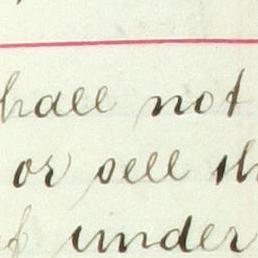 hall not
or sell th
f under